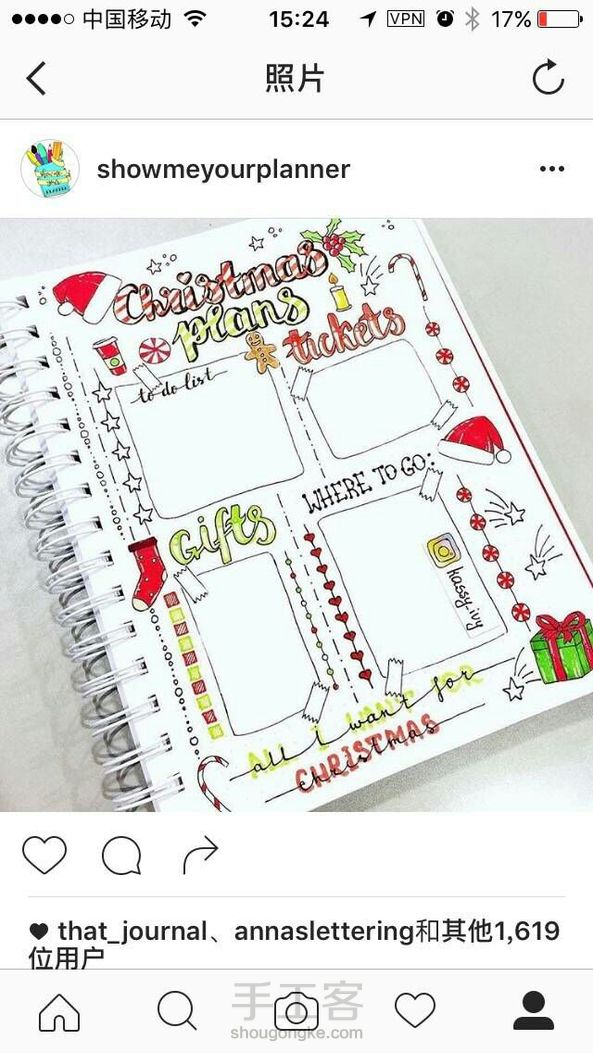 中国移动
15:24
VPN
17%
照片
showmeyourplanner
Christmas
plans
tickets
to do list
WHERE TO GO:
Gifts
kassy_ivy
ALL I WANT FOR
all i want for
CHRISTMAS
christmas
that_journal、annaslettering和其他1,619
位用户
手工客
shougongke.com